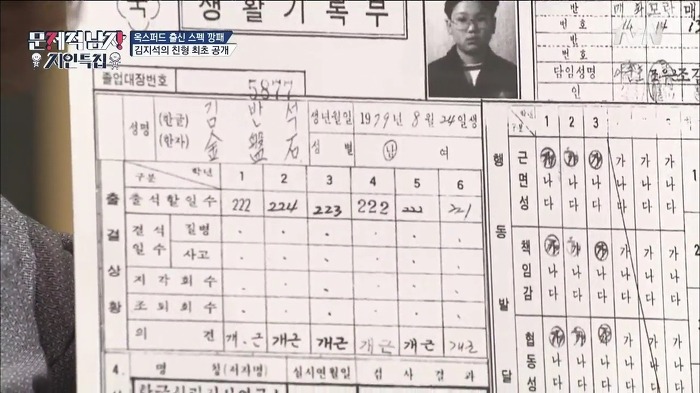 문제적남자
지인특집
옥스퍼드 출신 스펙 깡패
김지석의 친형 최초 공개
생활기록부
졸업대장번호 5877
성명 (한글) 김 반 석 생년월일 1979년 8월 24일생
(한자) 金 盤 石 성별 남 여
구분 학년 1 2 3 4 5 6
출석할일수 222 224 223 222 222 221
출결상황
결석일수 질병
사고
지각회수
조퇴회수
의견 개근 개근 개근 개근 개근 개근
4. 명칭(저자명) 실시연월일 검사결과
번호 번호
담임성명
인 인
구분 학년 1 2 3
행동발달
근면성 가 가 가 가 가
나 나 나 나 나
다 다 다 다 다
책임감 가 가 가 가 가
나 나 나 나 나
다 다 다 다 다
협동성 가 가 가 가 가
나 나 나 나 나
다 다 다 다 다